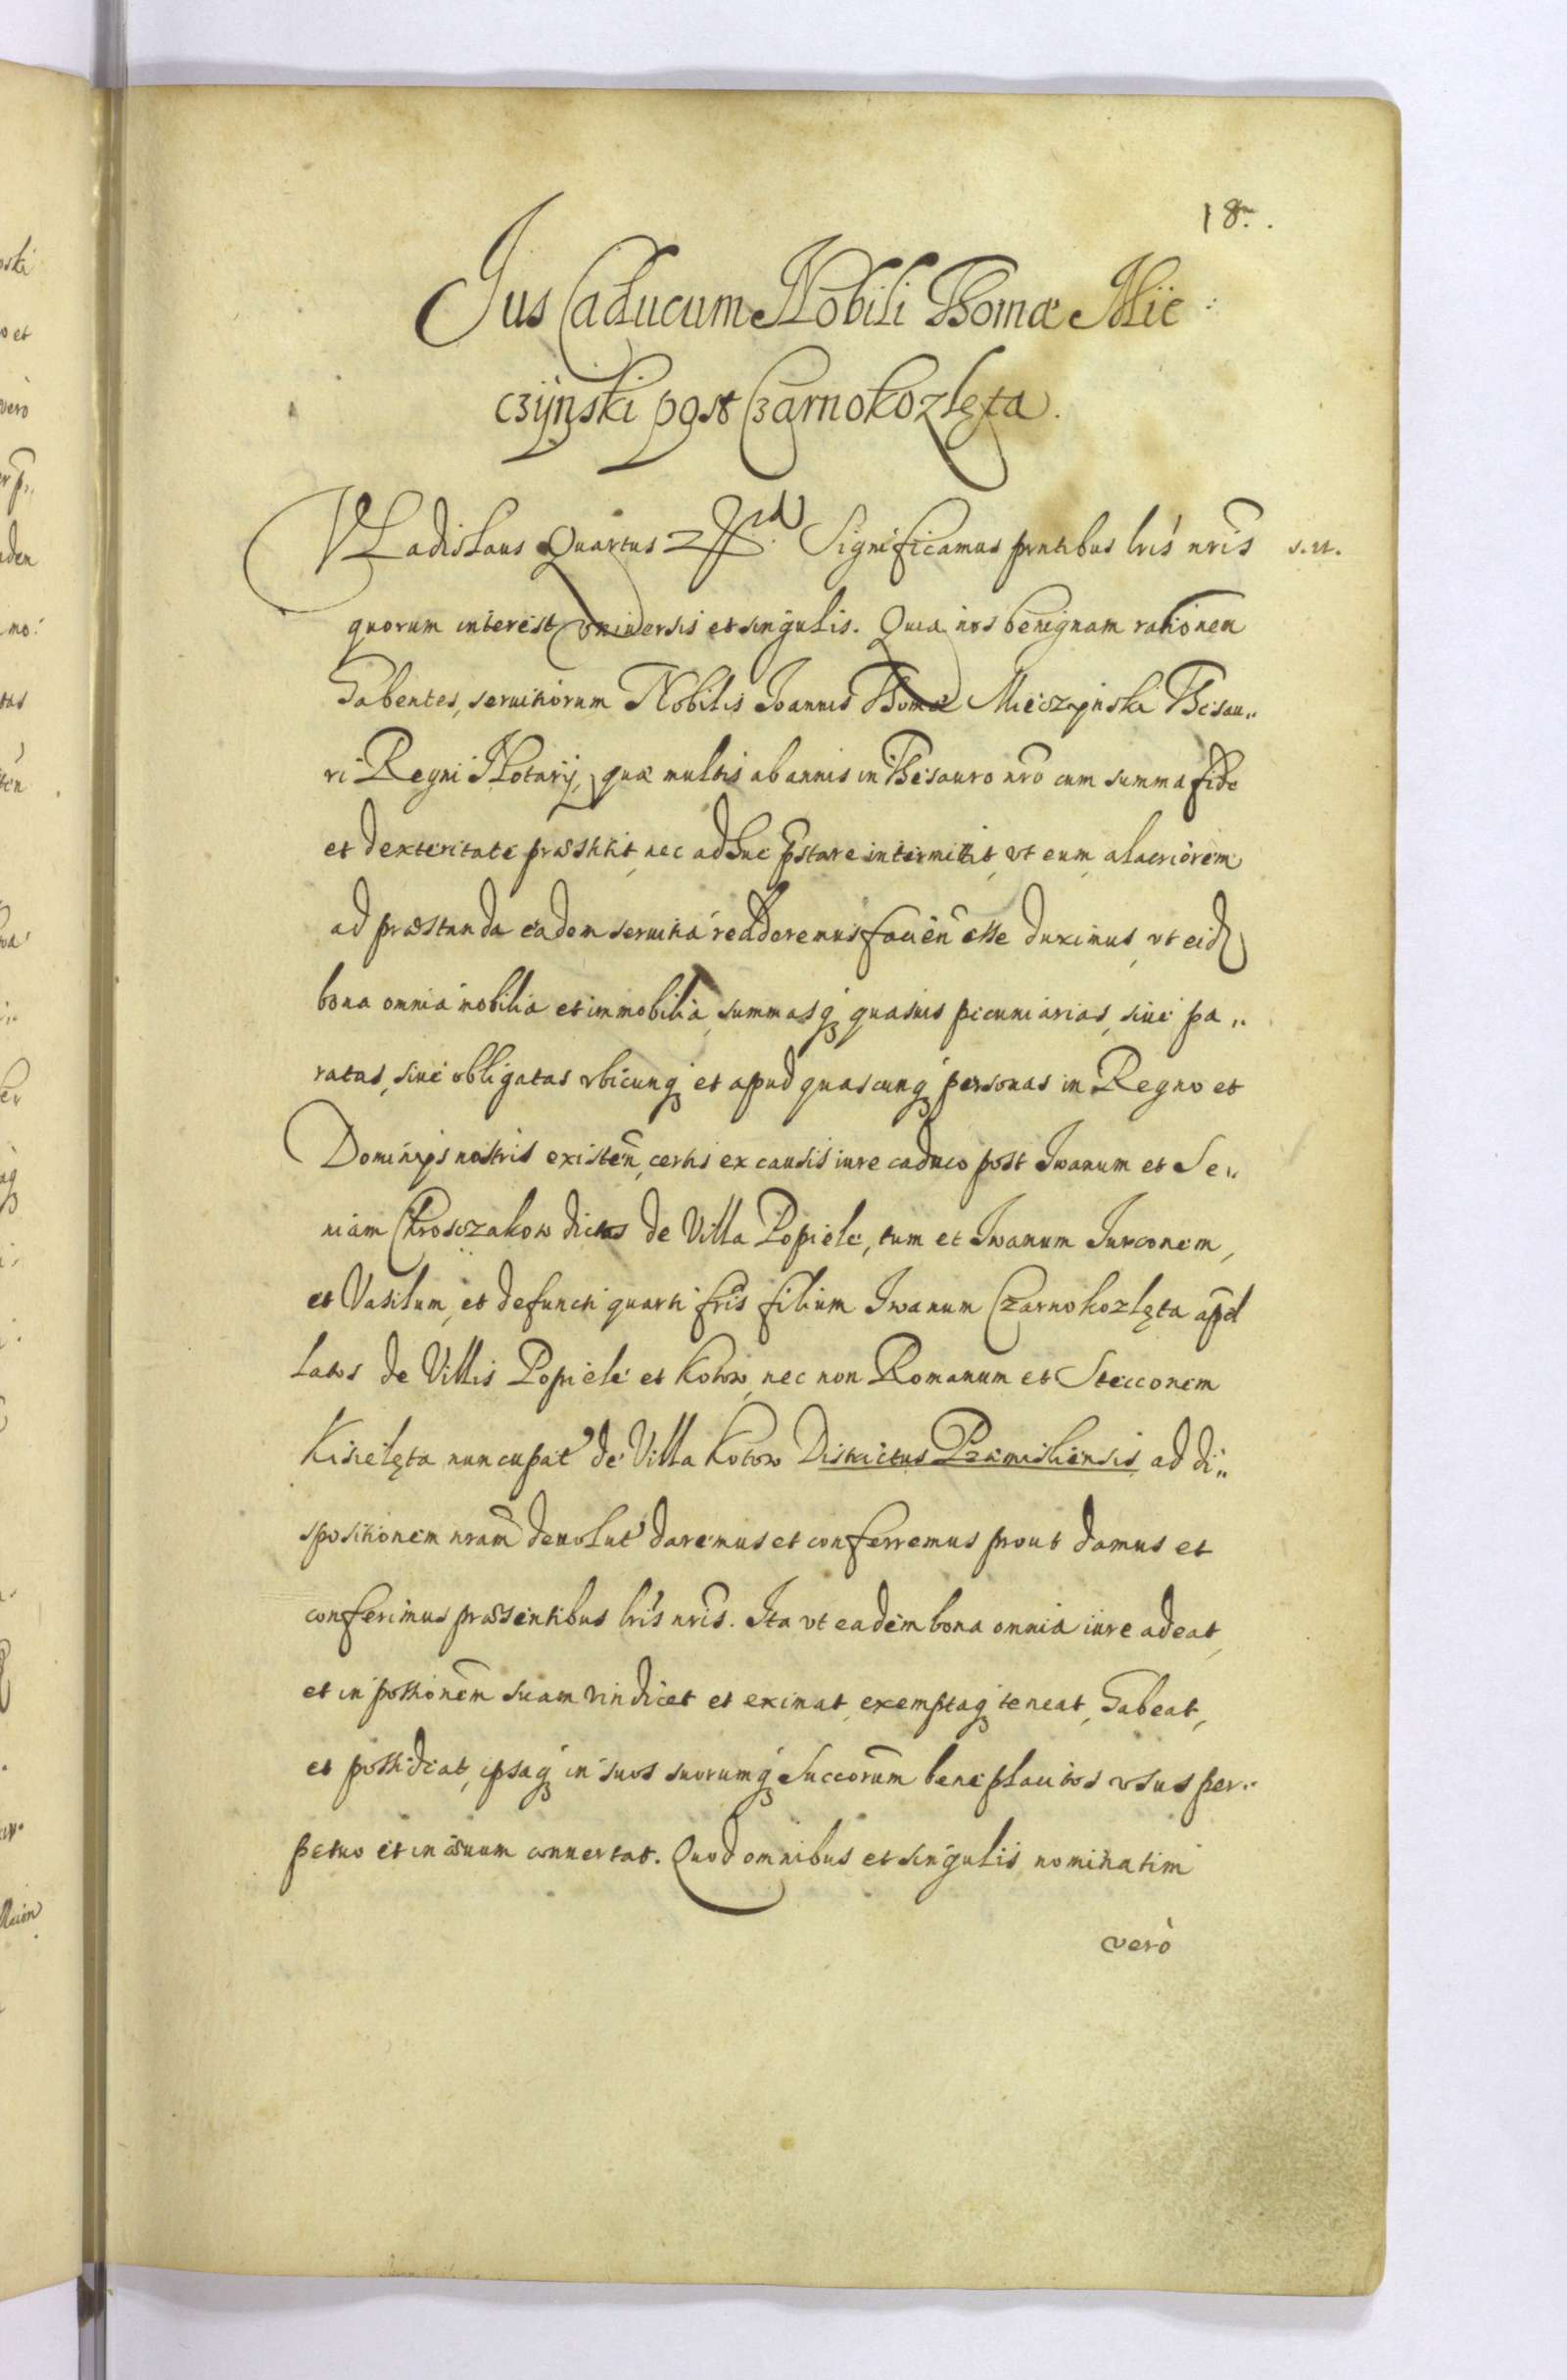 18.
Jus Caducum Nobili Thomæ Mie:
czÿnski post Czarnokozlęta.
VLadislaus Quartus Significamus pntibus lris nris s. u.
quorum interest vniuersis et singulis. Quia nos benignam rationem
habentes, seruitiorum Nobilis Joannis Thomæ Mieczynski Thesau„
ri Regni Notarij, quæ multis ab annis in Thesauro nro cum summa fide
et dexteritate præstitit, nec adhuc pstare intermittit, vt eum alacriorem
ad præstanda eadem seruitia redderemus facien̄ esse duximus, vt eid
bona omnia mobilia et immobilia, summasq quasuis pecuniarias, siue pa„
ratas, siue obligatas vbicunq et apud quascunq personas in Regno et
Dominijs nostris existen̄, certis ex causis iure caduco post Iwanum et Se„
niam Chrosczakow dictos de Villa Popiele, tum et Iwanum Jurconem,
et Vasilum, et defuncti quarti fris filium Iwanum Czarnokozlęta apel
latos de Villis Popiele et Kotow, nec non Romanum et Stecconem
Kisielęta nuncupat de Villa Kotow Districtus Premisliensis, ad di„
spositionem nram deuolut daremus et conferremus prout damus et
conferimus præsentibus lris nris. Ita vt eadem bona omnia iure adeat,
et in possionēm suam vindicet et eximat, exemptaq teneat, habeat,
et possideat, ipsaq in suos suorumq Succorum beneplacitos vsus per„
petuo et in æuum conuertat. Quod omnibus et singulis, nominatim
verò